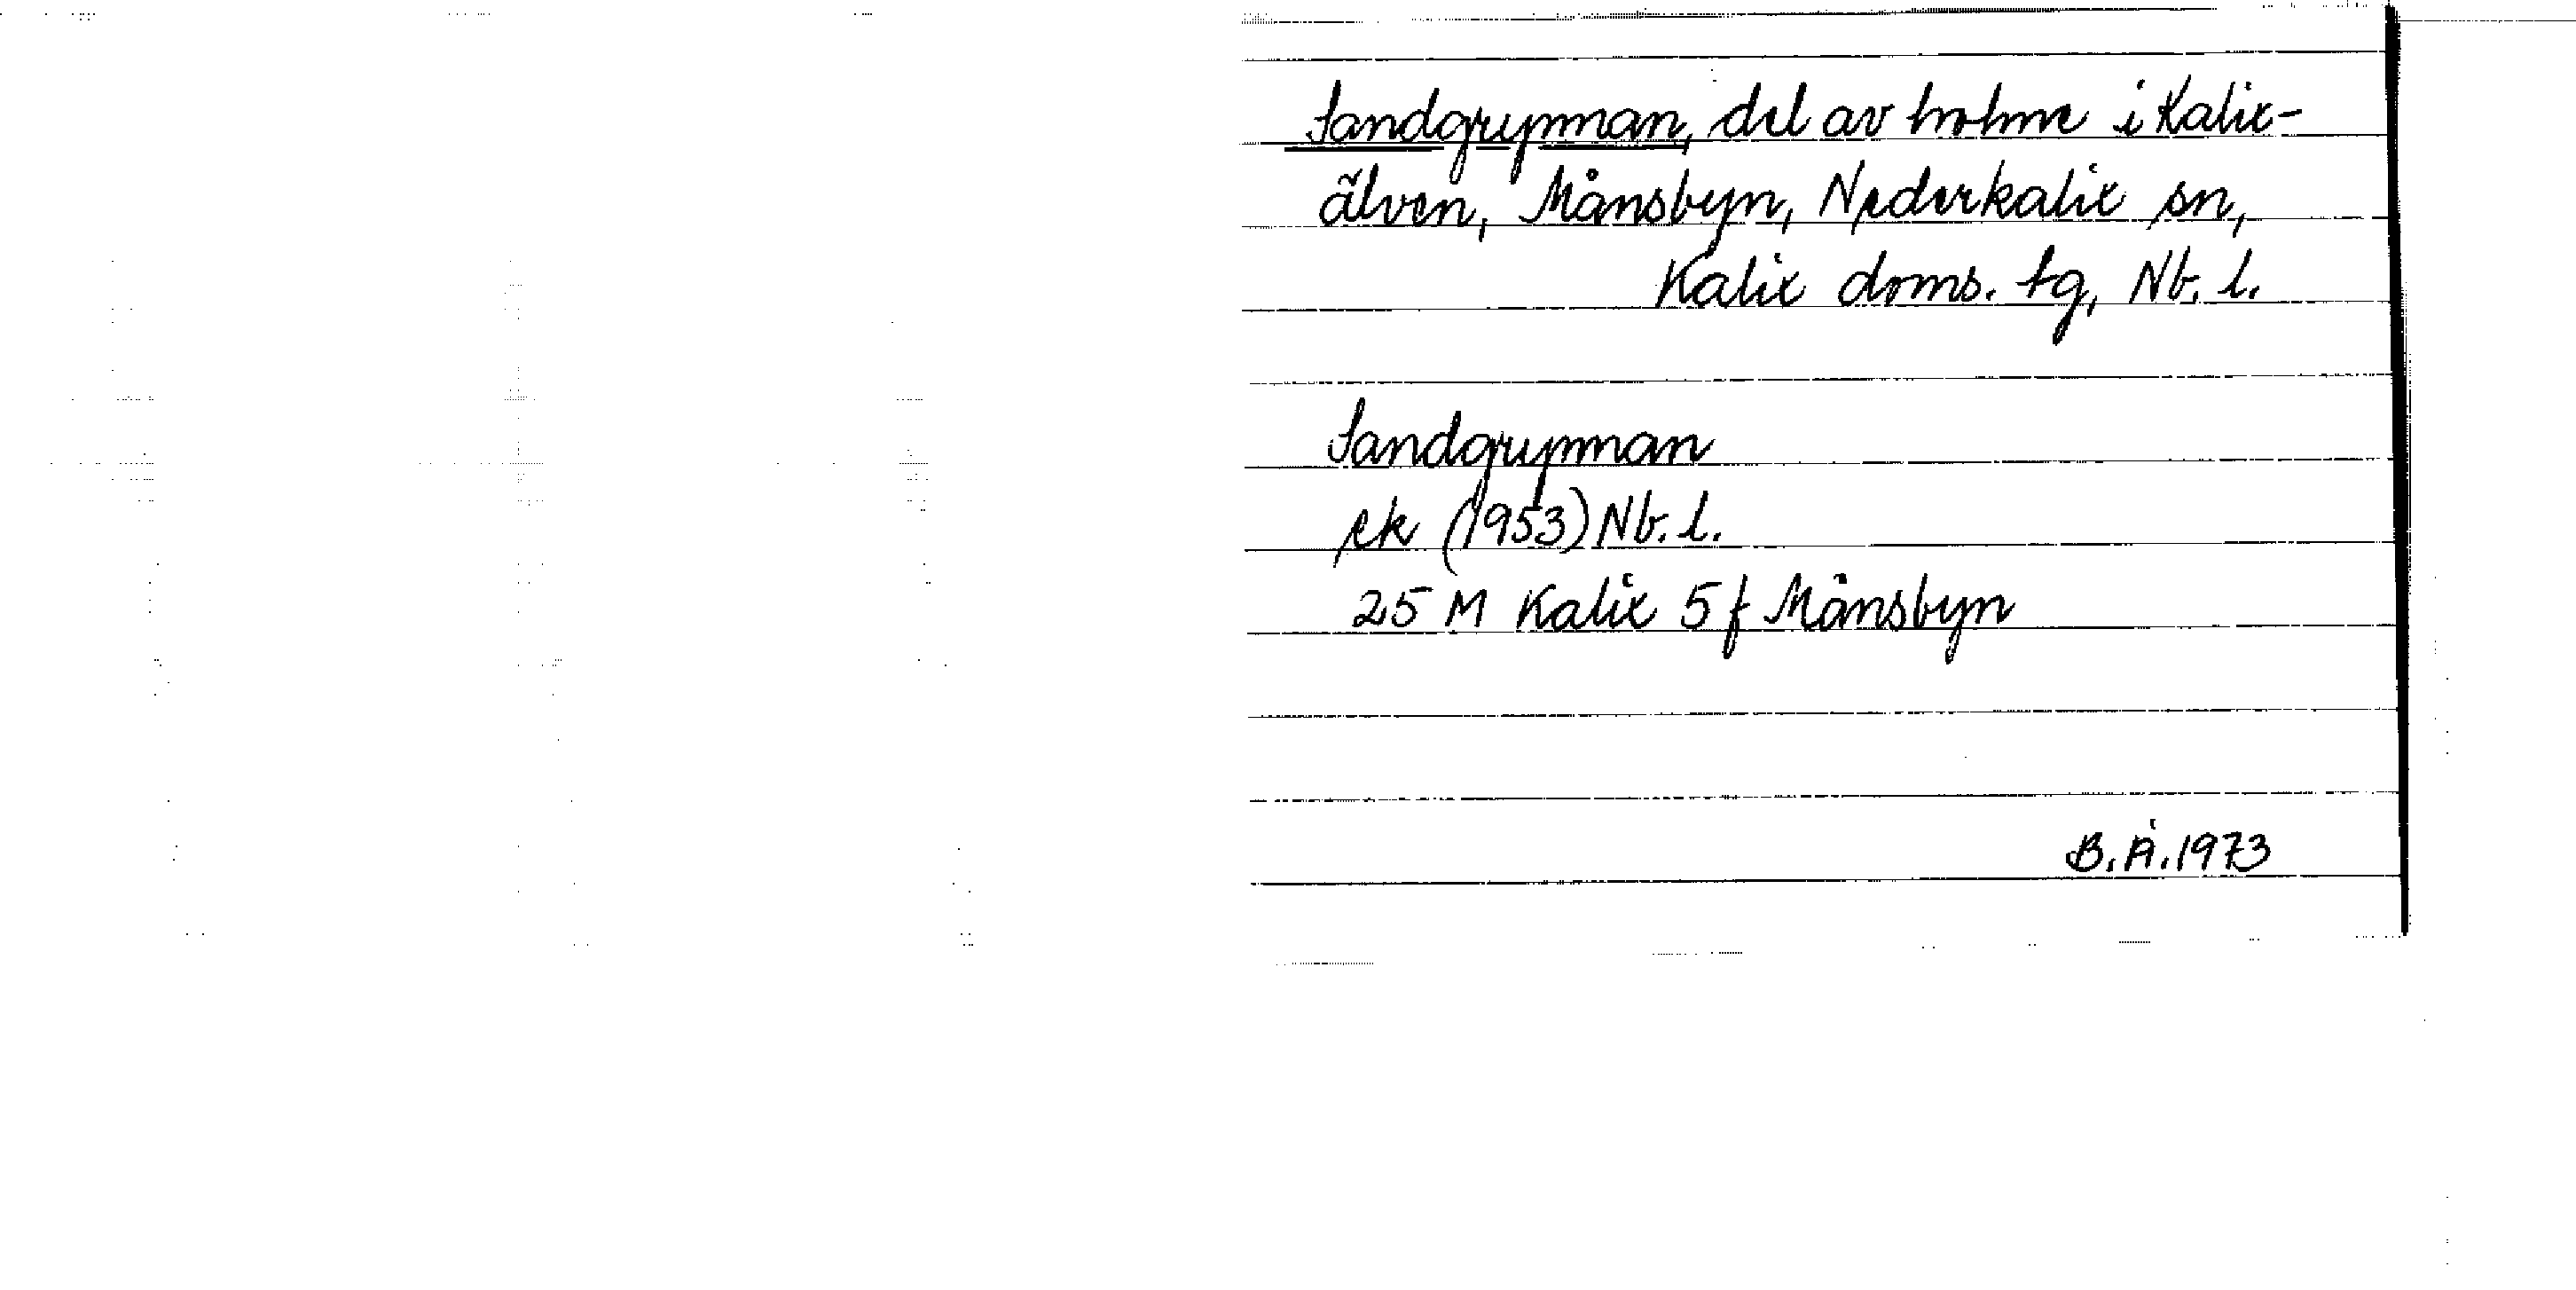 Sandgrynnan, del av holme i Kalix-
älven, Månsbyn, Nederkalix sn,
Kalix doms. tg, Nb. l.
Sandgrynnan
ek (1953) Nb. l.
25 M Kalix 5 f Månsbyn
B. Å. 1973